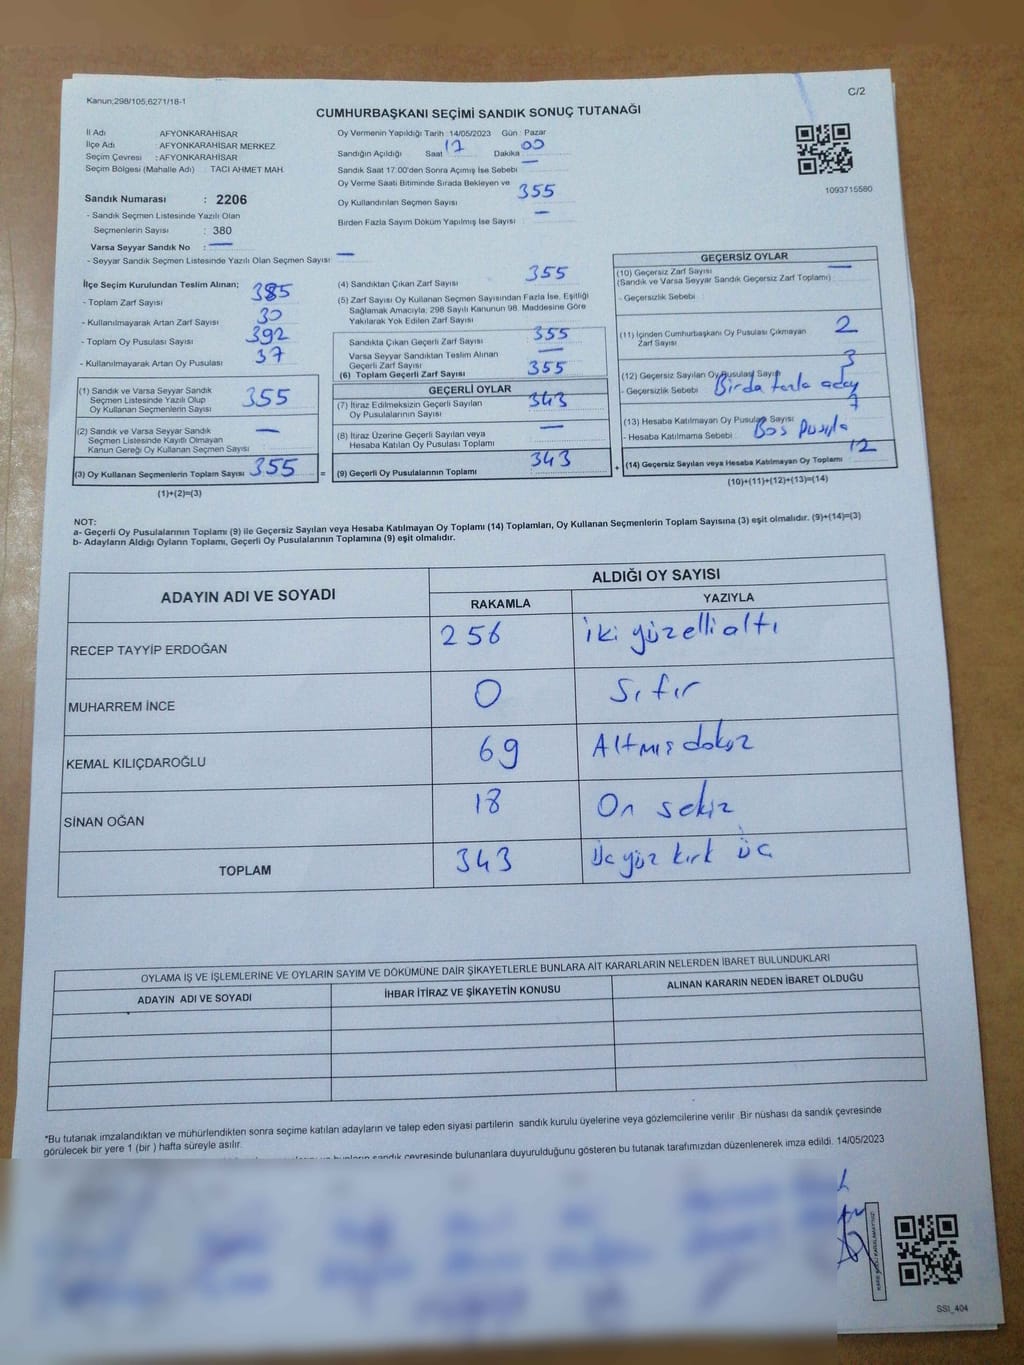 Kanun;298/105,6271/18-1
C/2
CUMHURBAŞKANI SEÇİMİ SANDIK SONUÇ TUTANAĞI
İl Adı AFYONKARAHİSAR
İlçe Adı : AFYONKARAHİSAR MERKEZ
Seçim Çevresi : AFYONKARAHİSAR
Seçim Bölgesi (Mahalle Adı) TACI AHMET MAH.
Sandık Numarası : 2206
- Sandık Seçmen Listesinde Yazılı Olan
Seçmenlerin Sayısı : 380
Varsa Seyyar Sandık No : —
- Seyyar Sandık Seçmen Listesinde Yazılı Olan Seçmen Sayısı —
Oy Vermenin Yapıldığı Tarih : 14/05/2023 Gün : Pazar
Sandığın Açıldığı Saat 17 Dakika 00
Sandık Saat 17:00'den Sonra Açımış İse Sebebi —
Oy Verme Saati Bitiminde Sırada Bekleyen ve
Oy Kullandırılan Seçmen Sayısı 355
Birden Fazla Sayım Döküm Yapılmış İse Sayısı : —
1093715580
İlçe Seçim Kurulundan Teslim Alınan;
- Toplam Zarf Sayısı 385
- Kullanılmayarak Artan Zarf Sayısı 30
- Toplam Oy Pusulası Sayısı 392
- Kullanılmayarak Artan Oy Pusulası 37
(1) Sandık ve Varsa Seyyar Sandık
Seçmen Listesinde Yazılı Olup
Oy Kullanan Seçmenlerin Sayısı 355
(2) Sandık ve Varsa Seyyar Sandık
Seçmen Listesinde Kayıtlı Olmayan
Kanun Gereği Oy Kullanan Seçmen Sayısı —
(3) Oy Kullanan Seçmenlerin Toplam Sayısı 355 =
(1)+(2)=(3)
(4) Sandıktan Çıkan Zarf Sayısı 355
(5) Zarf Sayısı Oy Kullanan Seçmen Sayısından Fazla İse, Eşitliği
Sağlamak Amacıyla; 298 Sayılı Kanunun 98. Maddesine Göre
Yakılarak Yok Edilen Zarf Sayısı
Sandıkta Çıkan Geçerli Zarf Sayısı 355
Varsa Seyyar Sandıktan Teslim Alınan
Geçerli Zarf Sayısı —
(6) Toplam Geçerli Zarf Sayısı 355
GEÇERLİ OYLAR
(7) İtiraz Edilmeksizin Geçerli Sayılan
Oy Pusulalarının Sayısı 343
(8) İtiraz Üzerine Geçerli Sayılan veya
Hesaba Katılan Oy Pusulası Toplamı —
(9) Geçerli Oy Pusulalarının Toplamı 343 +
GEÇERSİZ OYLAR
(10) Geçersiz Zarf Sayısı —
(Sandık ve Varsa Seyyar Sandık Geçersiz Zarf Toplamı)
- Geçersizlik Sebebi
(11) İçinden Cumhurbaşkanı Oy Pusulası Çıkmayan
Zarf Sayısı 2
(12) Geçersiz Sayılan Oy Pusulası Sayısı 3
- Geçersizlik Sebebi Birda fazla aday
(13) Hesaba Katılmayan Oy Pusulası Sayısı 7
- Hesaba Katılmama Sebebi Boş Pusula
(14) Geçersiz Sayılan veya Hesaba Katılmayan Oy Toplamı 12
(10)+(11)+(12)+(13)=(14)
NOT:
a- Geçerli Oy Pusulalarının Toplamı (9) ile Geçersiz Sayılan veya Hesaba Katılmayan Oy Toplamı (14) Toplamları, Oy Kullanan Seçmenlerin Toplam Sayısına (3) eşit olmalıdır. (9)+(14)=(3)
b- Adayların Aldığı Oyların Toplamı, Geçerli Oy Pusulalarının Toplamına (9) eşit olmalıdır.
ADAYIN ADI VE SOYADI ALDIĞI OY SAYISI
RAKAMLA YAZIYLA
RECEP TAYYİP ERDOĞAN 256 iki yüzelli altı
MUHARREM İNCE 0 Sıfır
KEMAL KILIÇDAROĞLU 69 Altmış dokuz
SİNAN OĞAN 18 On sekiz
TOPLAM 343 Üç yüz kırk üç
OYLAMA İŞ VE İŞLEMLERİNE VE OYLARIN SAYIM VE DÖKÜMÜNE DAİR ŞİKAYETLERLE BUNLARA AİT KARARLARIN NELERDEN İBARET BULUNDUKLARI
ADAYIN ADI VE SOYADI İHBAR İTİRAZ VE ŞİKAYETİN KONUSU ALINAN KARARIN NEDEN İBARET OLDUĞU
*Bu tutanak imzalandıktan ve mühürlendikten sonra seçime katılan adayların ve talep eden siyasi partilerin sandık kurulu üyelerine veya gözlemcilerine verilir. Bir nüshası da sandık çevresinde
görülecek bir yere 1 (bir ) hafta süreyle asılır.
sandık çevresinde bulunanlara duyurulduğunu gösteren bu tutanak tarafımızdan düzenlenerek imza edildi. 14/05/2023
SSI_404